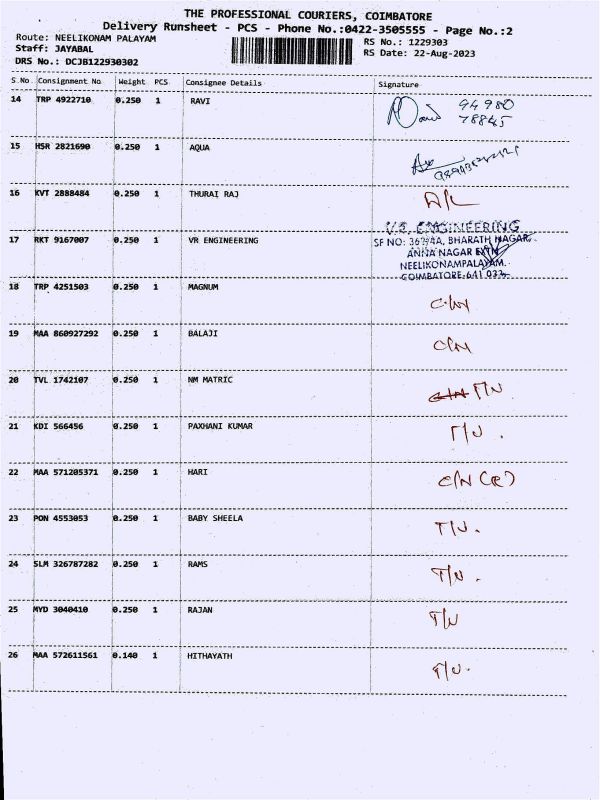 THE PROFESSIONAL COURIERS, COIMBATORE
Delivery Runsheet - PCS - Phone No.:0422-3505555 - Page No.:2
Route: NEELIKONAM PALAYAM
RS No.: 1229303
Staff: JAYABAL
RS Date: 22-Aug-2023
DRS No.: DCJB122930302
S.No Consignment No Weight PCS Consignee Details Signature
14 TRP 4922710 0.250 1 RAVI 94980
78845
15 HSR 2821690 0.250 1 AQUA
16 KVT 2888484 0.250 1 THURAI RAJ
V.R. ENGINEERING
17 RKT 9167007 0.250 1 VR ENGINEERING SF NO: BHARATH NAGAR,
ANNA NAGAR EXTN
NEELIKONAMPALAYAM.
COIMBATORE-641 033
18 TRP 4251503 0.250 1 MAGNUM C/N
19 MAA 860927292 0.250 1 BALAJI C/N
20 TVL 1742107 0.250 1 NM MATRIC C/N T/N
21 KDI 566456 0.250 1 PAXHANI KUMAR T/N.
22 MAA 571205371 0.250 1 HARI C/N (R)
23 PON 4553053 0.250 1 BABY SHEELA T/N.
24 SLM 326787282 0.250 1 RAMS T/N.
25 MYD 3040410 0.250 1 RAJAN T/N
26 MAA 572611561 0.140 1 HITHAYATH T/N.